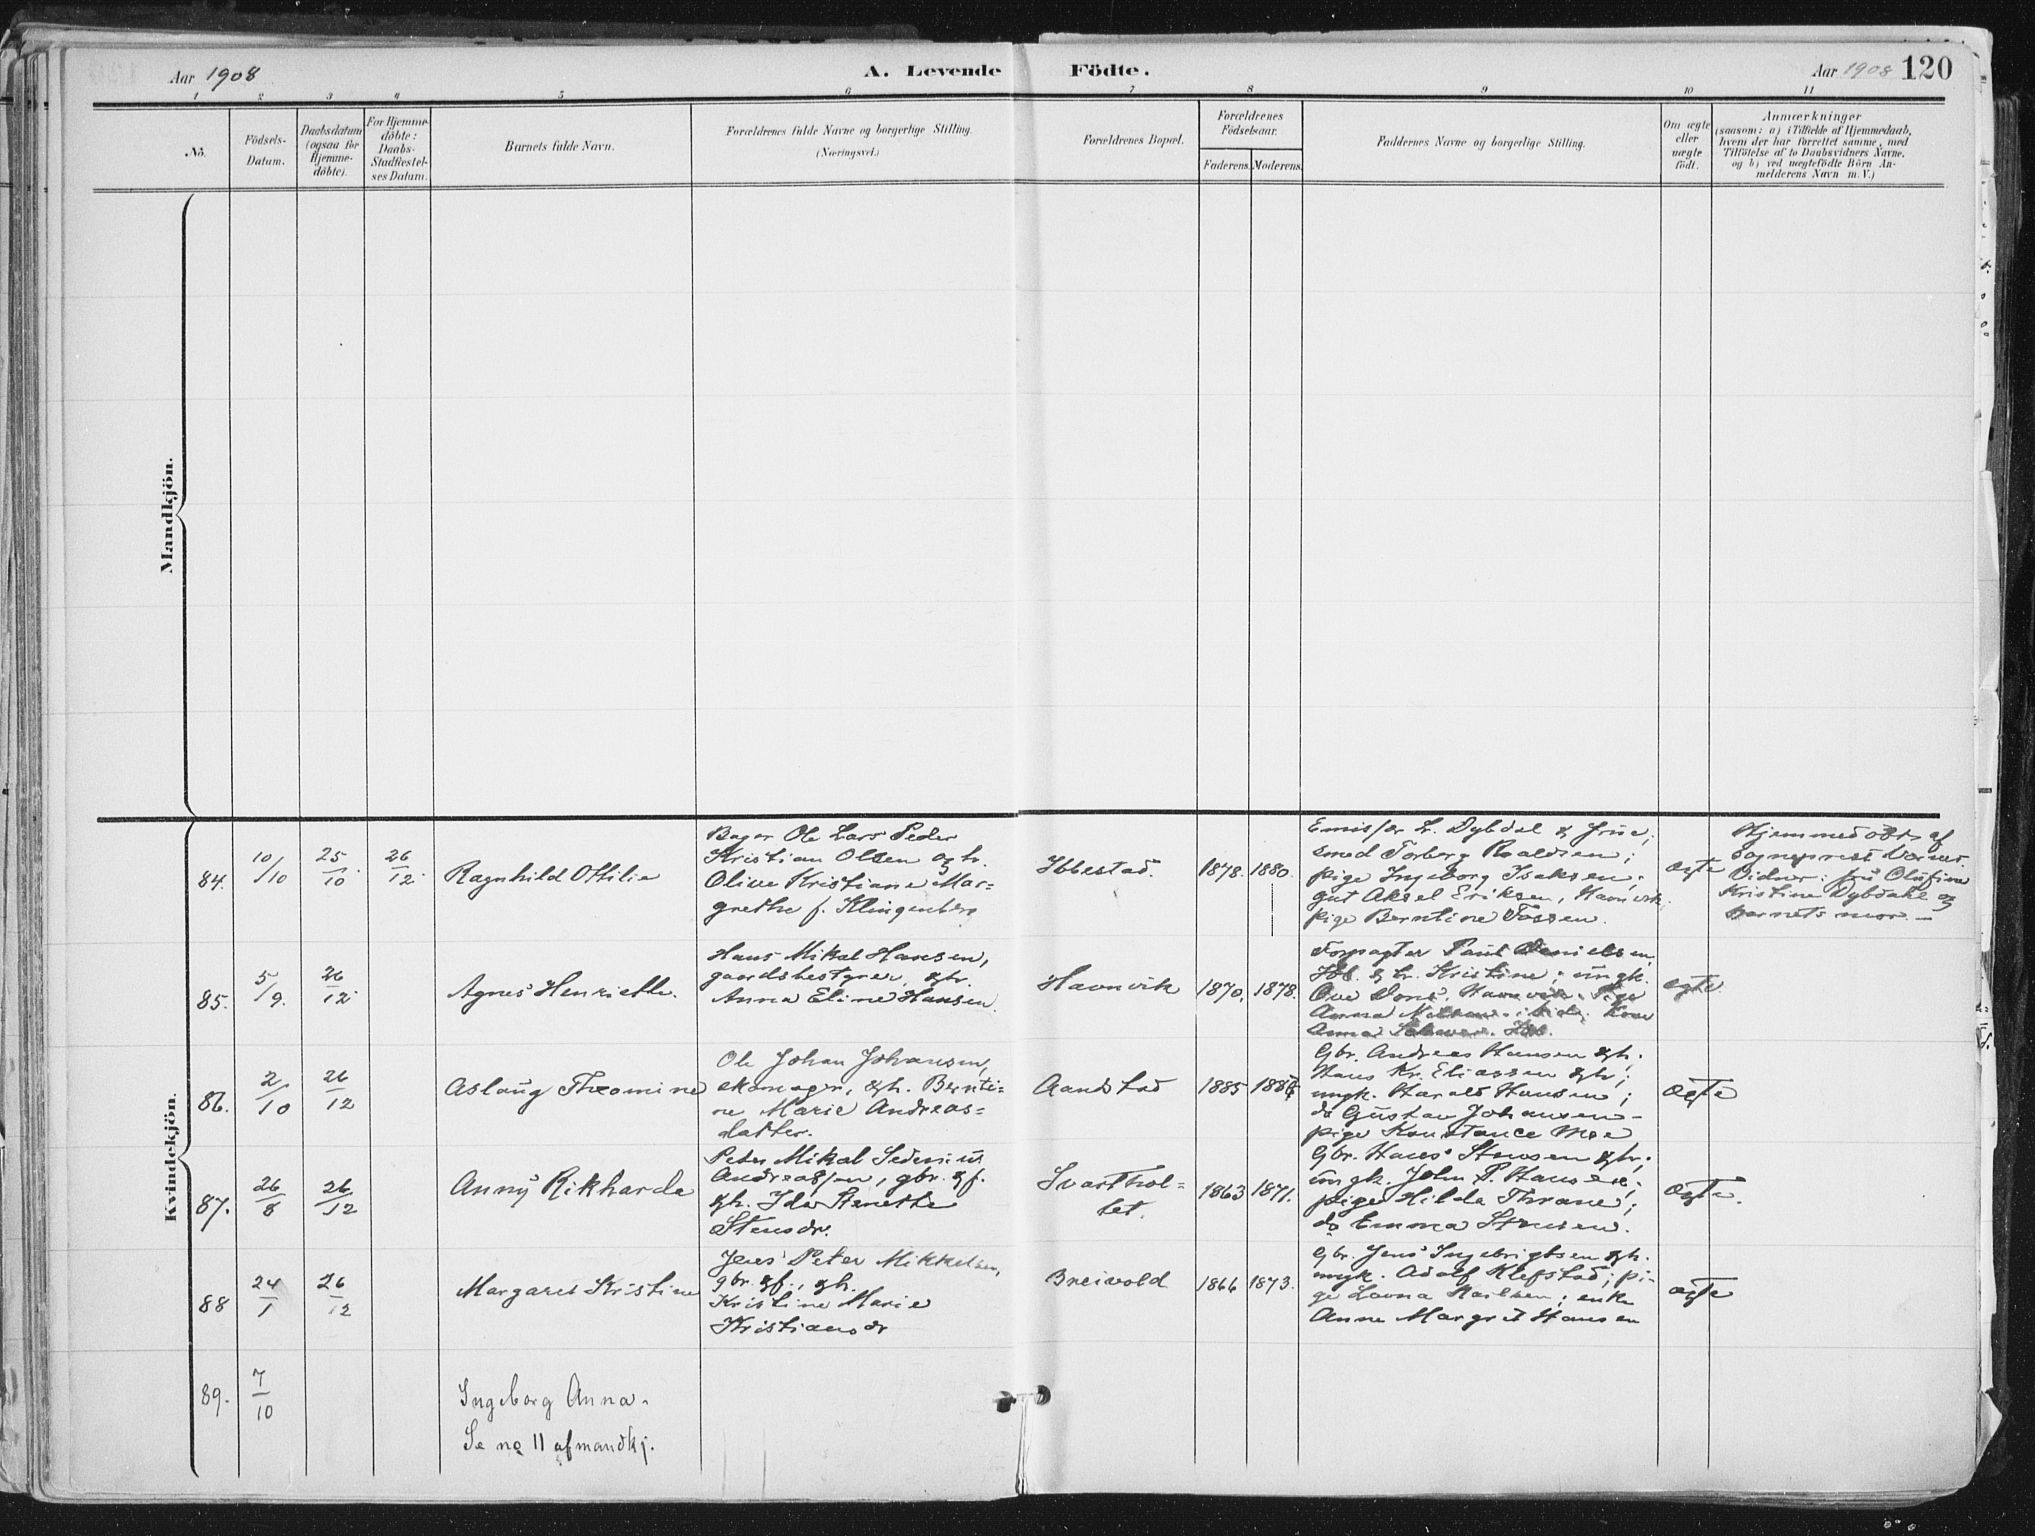 Aar 1908
A. Levende
Födte.
Aar 1908
120
1 2 3 4 5 6 7 8 9 10 11
No.
Födsels-
Datum.
Daabsdatum
(ogsaa for
Hjemme-
döbte).
For Hjemme-
döbte:
Daabs-
Stadfæstel-
ses Datum.
Barnets fulde Navn.
Forældrenes fulde Navne og borgerlige Stilling.
(Næringsvei.)
Forældrenes Bopæl.
Forældrenes
Födselsaar.
Faderens.
Moderens.
Faddernes Navne og borgerlige Stilling.
Om ægte
eller
uægte
födt.
Anmærkninger
(saasom: a) i Tilfælde af Hjemmedaab,
hvem der har forrettet samme, med
Tilföielse af to Daabsvidners Navne,
og b) ved uægtefödte Börn An-
melderens Navn m. V.)
Mandkjön.
Kvindekjön.
84.
10/10
25/10
26/12
Ragnhild Othilie
Bager Ole Lars Peder
Kristian Olsen og h.
Olive Kristiane Mar=
grethe f. Klingenberg
Ibbestad.
1878.
1880.
Emissær L. Dybdal & frue;
smed Torberg Roaldsen;
pige Ingeborg Isaksen;
gut Aksel Eriksen, Havnvik;
pige Berntine Tossen.
ægte
Hjemmedøbt af
sogneprest
Vidner: fru Olufine
Kristine Dybdahl og
barnets mor.
85.
5/9.
26/12.
Agnes Henriette.
Hans Mikal Hansen,
gaardsbestyrer, & h.
Anna Eline Hansen
Havnvik
1870.
1878.
Forpagter Paul Danielsen,
Ibb. & h. Kristine; ungk.
Ove Dons, Havnvik; Pige
Anna Kone
Anna Ibb.
ægte.
86.
2/10
26/12
Aslaug Theomine
Ole Johan Johansen,
skomager, & h. Bernti=
ne Marie Andreas=
datter.
Aandstad
1885
Gbr. Andreas Hansen & h.
Hans Kr. Eliassen & h;
ungk. Harald Hansen;
do Gustav Johansen
pige Konstance Moe
ægte
87.
26/8
26/12
Anny Rikharda
Peter Mikal Sedenius
Andreassen, gbr. & f.
& h. Ida Renette
Stensdr.
Svarthol=
tet.
1863
1871.
Gbr. Hans Stensen & h;
ungk. John P. Hansen;
pige Hilda Thrane;
do Emma Stensen.
ægte.
88
24/1
26/12
Margaret Kristine
Jens Peter Mikkelsen,
gbr. & f., & h.
Kristine Marie
Kristiansdr
Breivold
1866
1873.
Gbr. Jens Ingebrigtsen & h.
ungk. Adolf Klefstad; pi=
ge Lovna Karlsen; enke
Anne Margret Hansen
ægte
89.
7/10
Ingeborg Anna.
Se no 11 af mandkj.